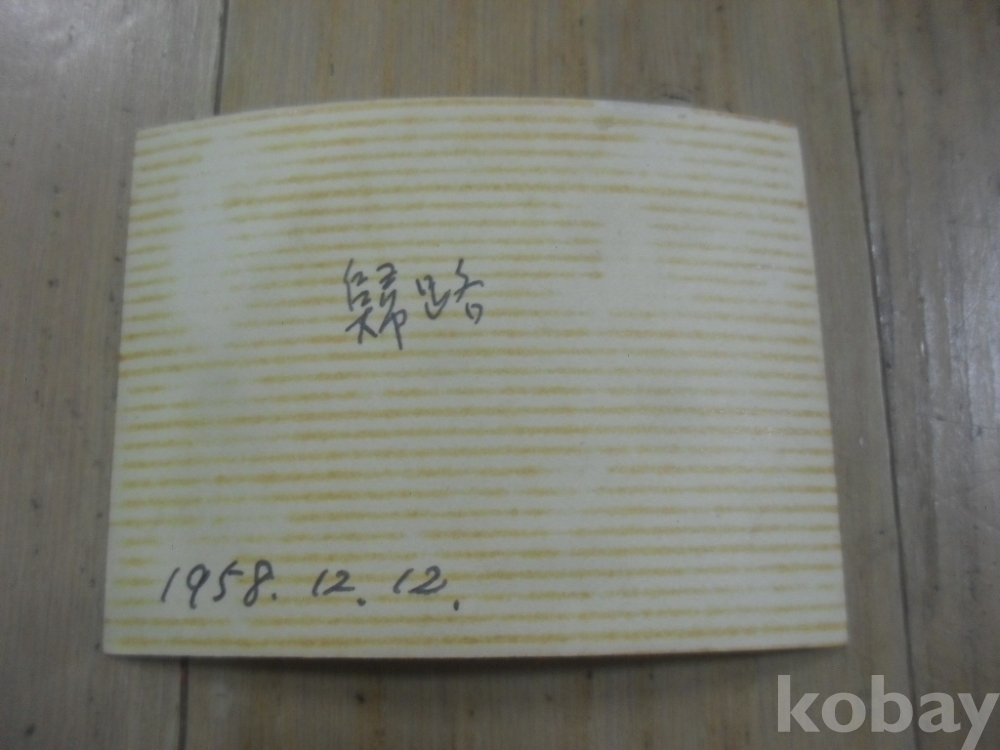 歸路
1958. 12. 12.
kobay